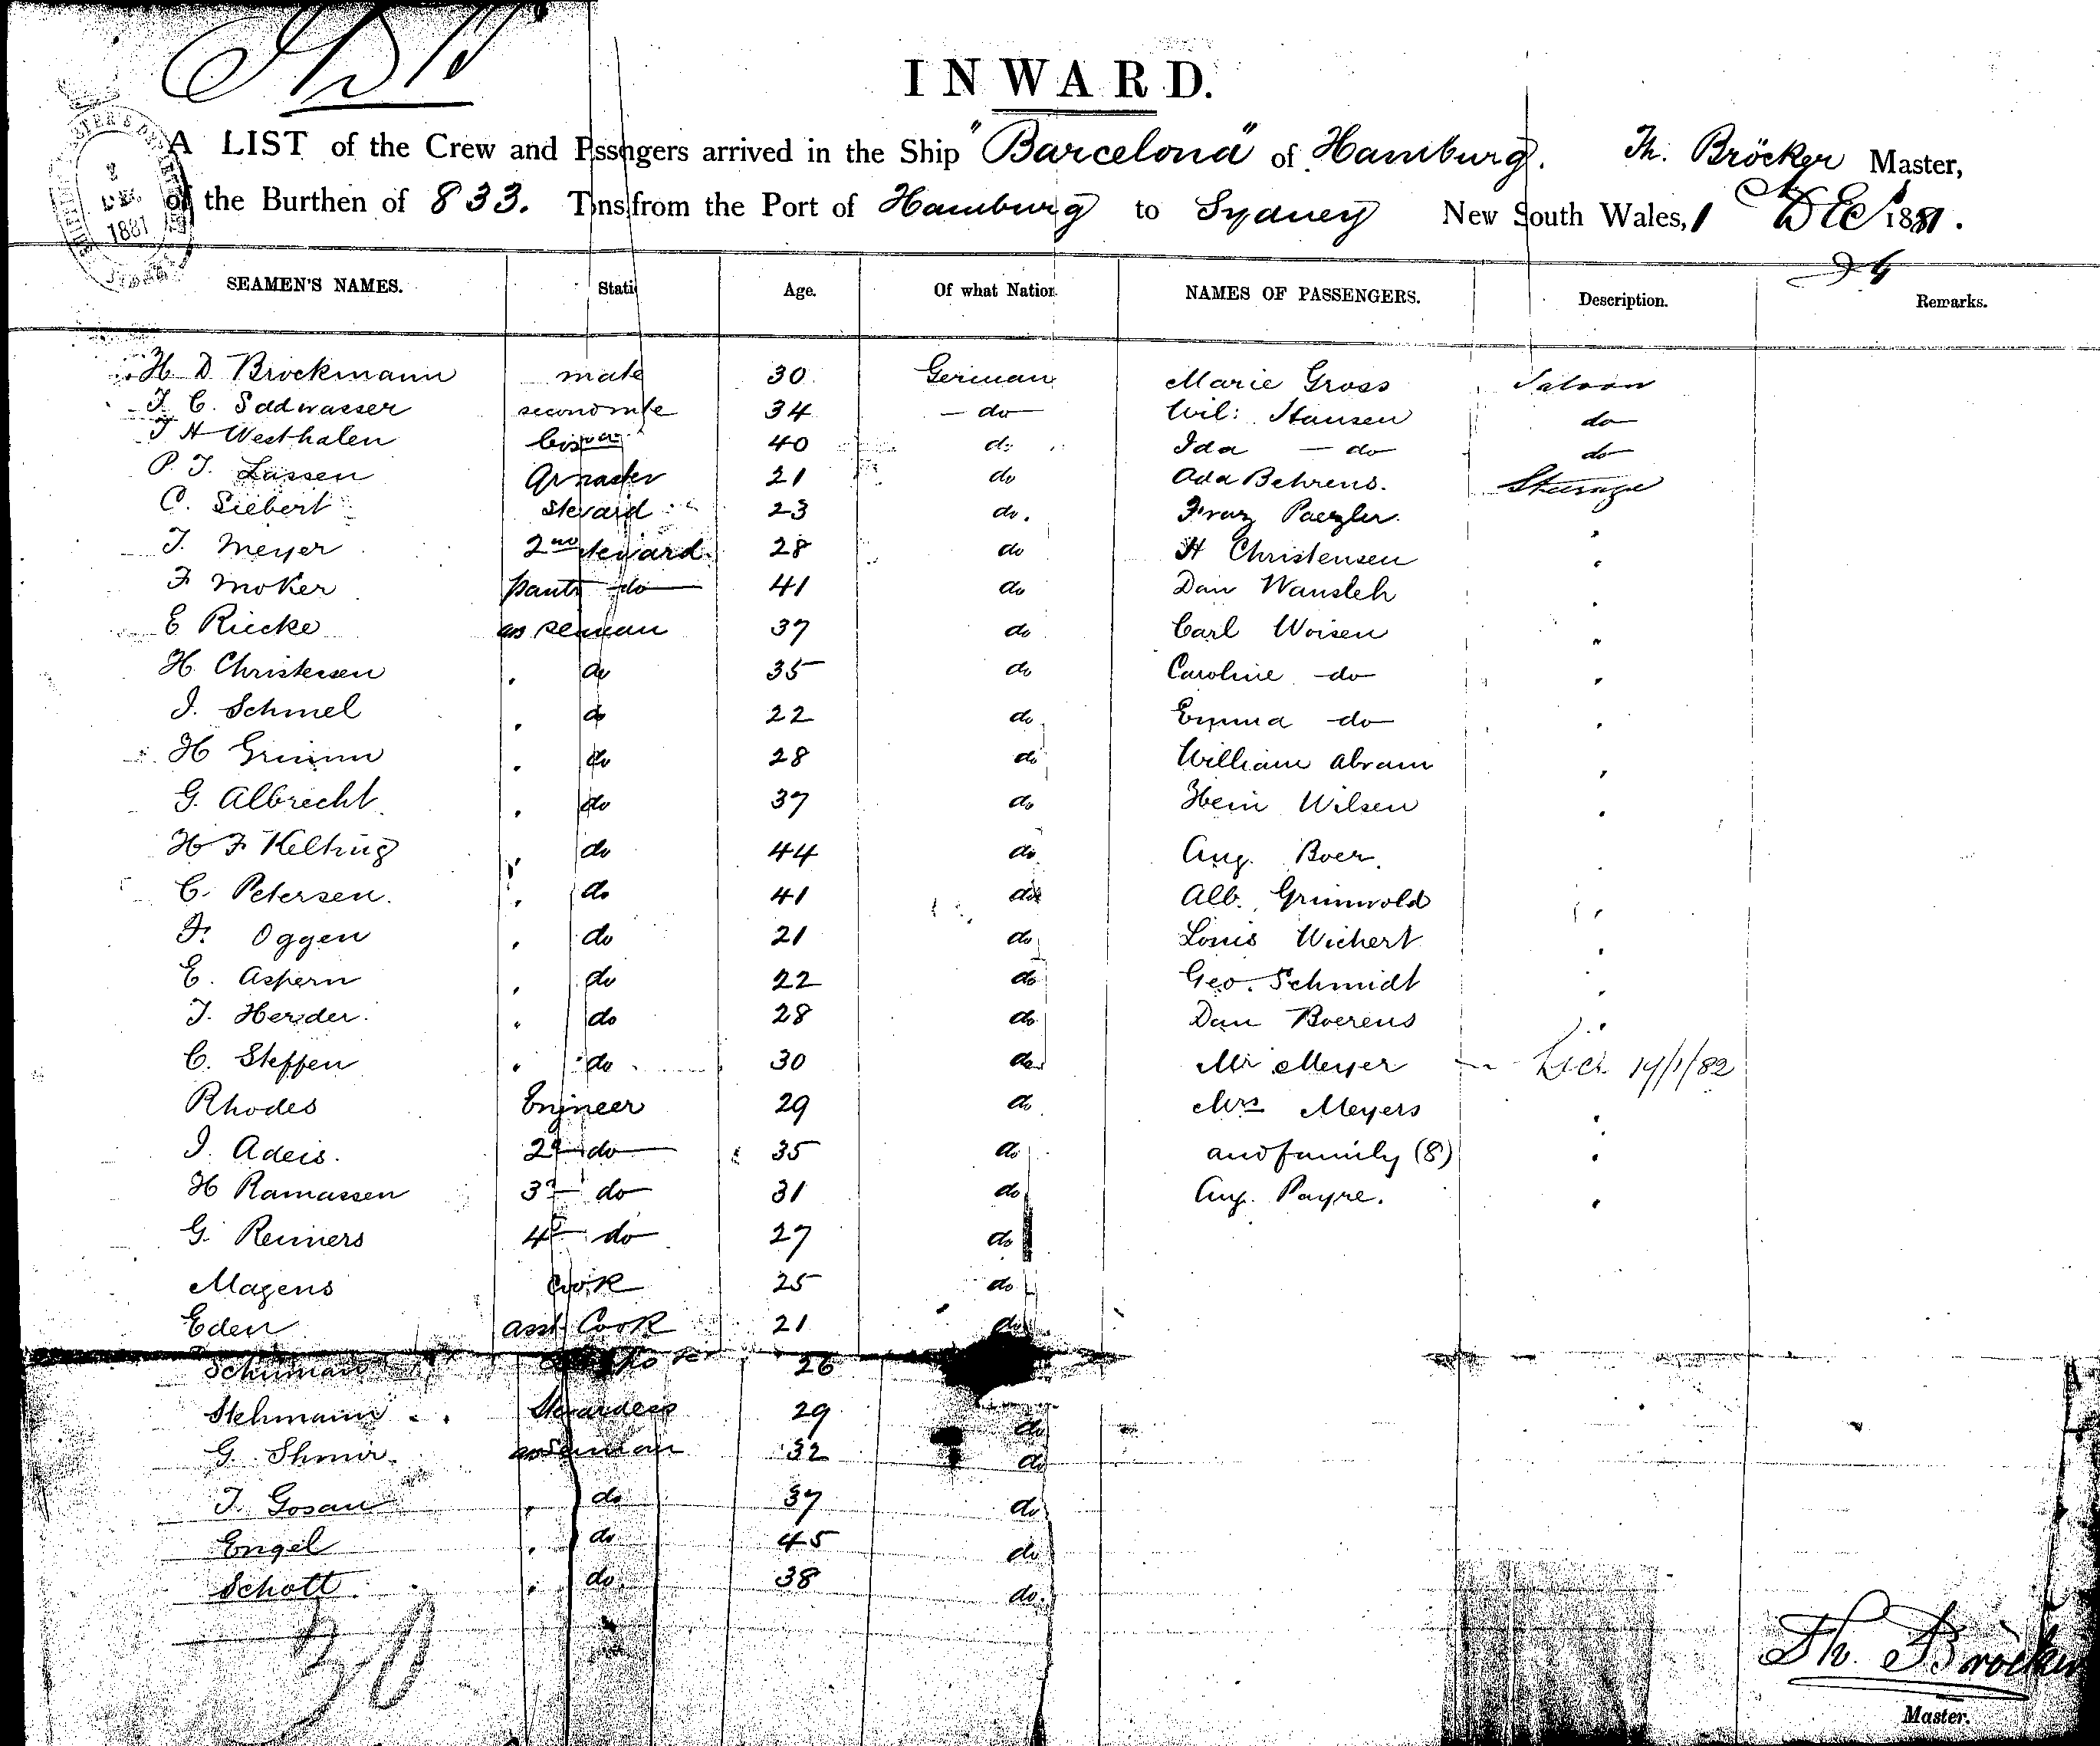 INWARD.
A LIST of the Crew and Pssngers arrived in the Ship "Barcelona" of Hamburg. Th. Bröcker Master,
of the Burthen of 833. Tns from the Port of Hamburg to Sydney New South Wales, 1 DEC 1881.
2 DEC 1881
SEAMEN'S NAMES. Stati Age. Of what Nation NAMES OF PASSENGERS. Description. Remarks.
H D Brockmann mate 30 German Marie Gross Saloon
34 do Wil: Hansen do
J H Westhalen 40 do Ida do do
P. J. Lassen 21 do Ada Behrens. Steerage
C. Siebert Stevard 23 do. Franz Paezler.
J. Meyer 2nd steward 28 do H Christensen "
F Moker pantr do 41 do Dan Wansleh "
E Riecke as seaman 37 do Carl Woisen "
H. Christensen " do 35 do Caroline do "
J. Schmel " do 22 do Emma do "
H Grimm " do 28 do William Abram "
G. Albrecht " do 37 do Hein Wilsen "
H F Kelting " do 44 do Aug. Boer.
C. Petersen. " do 41 do Alb. Grunwold "
F. Oggen " do 21 do Louis Wichert "
E. Aspern " do 22 do Geo. Schmidt "
J. Herder. " do 28 do Dan Boerens "
C. Steffen " do 30 do Mr Meyer 14/1/82
Rhodes Engineer 29 do Mrs Meyers "
J. Adeis. 2d do 35 do and family (8) "
H Ramassen 3d do 31 do Aug. Payre. "
G. Reimers 4th do 27 do
Magens Cook 25 do
Eden asst Cook 21 do
Schuman 26
Stehmann Stewardess 29 do
G. Shmir as Seaman 32 do
J. Gosau " do 37 do
Engel " do 45 do
Schott " do 38 do.
30
Th. Bröcker
Master.